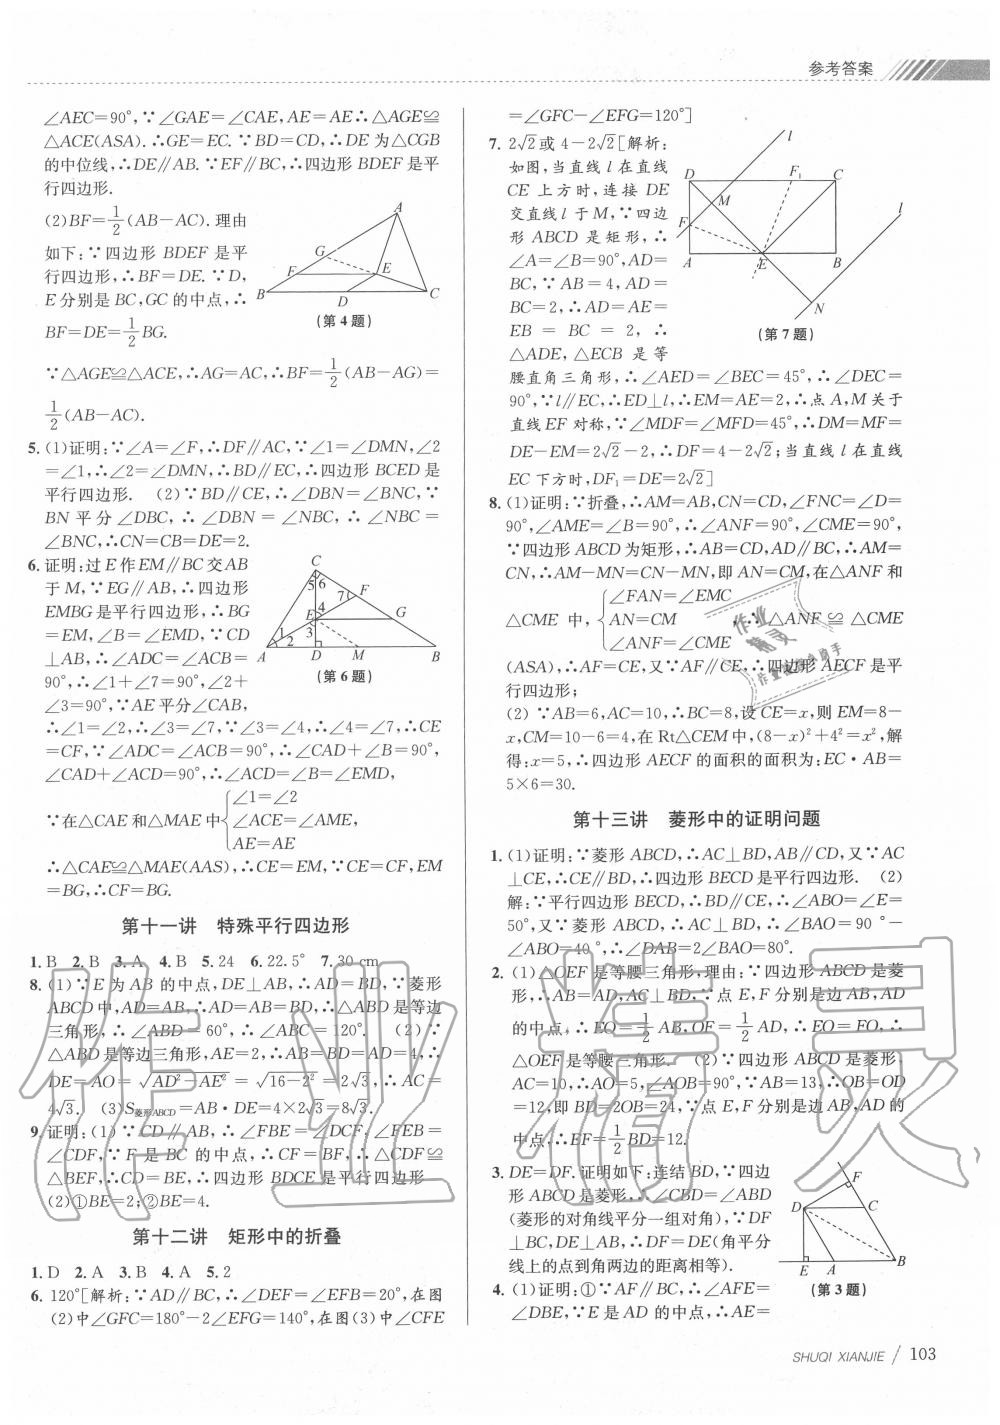 参考答案
∠AEC=90°,∵∠GAE=∠CAE,AE=AE∴△AGE≌
△ACE(ASA).∴GE=EC.∵BD=CD,∴DE为△CGB
的中位线,∴DE∥AB.∵EF∥BC,∴四边形BDEF是平
行四边形.
(2)BF=1/2(AB-AC).理由
如下:∵四边形BDEF是平
行四边形,∴BF=DE.∵D,
E分别是BC,GC的中点,∴
BF=DE=1/2BG.
A
G
F
E
B
D
C
(第4题)
∵△AGE≌△ACE,∴AG=AC,∴BF=1/2(AB-AG)=
1/2(AB-AC).
5.(1)证明:∵∠A=∠F,∴DF∥AC,∵∠1=∠DMN,∠2
=∠1,∴∠2=∠DMN,∴BD∥EC,∴四边形BCED是
平行四边形. (2)∵BD∥CE,∴∠DBN=∠BNC,∵
BN平分∠DBC,∴∠DBN=∠NBC,∴∠NBC=
∠BNC,∴CN=CB=DE=2.
6.证明:过E作EM∥BC交AB
于M,∵EG∥AB,∴四边形
EMBG是平行四边形,∴BG
=EM,∠B=∠EMD,∵CD
⊥AB,∴∠ADC=∠ACB=
90°,∴∠1+∠7=90°,∠2+
∠3=90°,∵AE平分∠CAB,
C
5 6
7
F
4
E
G
3
1
2
A
D
M
B
(第6题)
∴∠1=∠2,∴∠3=∠7,∵∠3=∠4,∴∠4=∠7,∴CE
=CF,∵∠ADC=∠ACB=90°,∴∠CAD+∠B=90°,
∠CAD+∠ACD=90°,∴∠ACD=∠B=∠EMD,
∵在△CAE和△MAE中{∠1=∠2
∠ACE=∠AME,
AE=AE
∴△CAE≌△MAE(AAS),∴CE=EM,∵CE=CF,EM
=BG,∴CF=BG.
第十一讲 特殊平行四边形
1.B 2.B 3.A 4.B 5.24 6.22.5° 7.30 cm
8.(1)∵E为AB的中点,DE⊥AB,∴AD=BD,∵菱形
ABCD中,AD=AB,∴AD=AB=BD,∴△ABD是等边
三角形,∴∠ABD=60°,∴∠ABC=120°. (2)∵
△ABD是等边三角形,AE=2,∴AD=AB=4,∴
DE=AO=√(AD²-AE²)=√(16-2²)=2√3,∴AC=
4√3. (3)S菱形ABCD=AB·DE=4×2√3=8√3.
9.证明:(1)∵CD∥AB,∴∠FBE=∠DCF,∠FEB=
∠CDF,∵F是BC的中点,∴CF=BF,∴△CDF≌
△BEF,∴CD=BE,∴四边形BDCE是平行四边形
(2)①BE=2;②BE=4.
第十二讲 矩形中的折叠
1.D 2.A 3.B 4.A 5.2
6.120°[解析:∵AD∥BC,∴∠DEF=∠EFB=20°,在图
(2)中∠GFC=180°-2∠EFG=140°,在图(3)中∠CFE
=∠GFC-∠EFG=120°]
7.2√2或4-2√2[解析:
如图,当直线l在直线
CE上方时,连接DE
交直线l于M,∵四边
形ABCD是矩形,∴
∠A=∠B=90°,AD=
BC,∵AB=4,AD=
BC=2,∴AD=AE=
EB=BC=2,∴
△ADE,△ECB是等
l
D
F₁
C
M
F
l
A
E
B
N
(第7题)
腰直角三角形,∴∠AED=∠BEC=45°,∴∠DEC=
90°,∵l∥EC,∴ED⊥l,∴EM=AE=2,∴点A,M关于
直线EF对称,∵∠MDF=∠MFD=45°,∴DM=MF=
DE-EM=2√2-2,∴DF=4-2√2;当直线l在直线
EC下方时,DF₁=DE=2√2]
8.(1)证明:∵折叠,∴AM=AB,CN=CD,∠FNC=∠D=
90°,∠AME=∠B=90°,∴∠ANF=90°,∠CME=90°,
∵四边形ABCD为矩形,∴AB=CD,AD∥BC,∴AM=
CN,∴AM-MN=CN-MN,即AN=CM,在△ANF和
△CME中,{∠FAN=∠EMC
AN=CM
∠ANF=∠CME
,∴△ANF≌△CME
(ASA),∴AF=CE,又∵AF∥CE,∴四边形AECF是平
行四边形;
(2)∵AB=6,AC=10,∴BC=8,设CE=x,则EM=8-
x,CM=10-6=4,在Rt△CEM中,(8-x)²+4²=x²,解
得:x=5,∴四边形AECF的面积的面积为:EC·AB=
5×6=30.
第十三讲 菱形中的证明问题
1.(1)证明:∵菱形ABCD,∴AC⊥BD,AB∥CD,又∵AC
⊥CE,∴CE∥BD,∴四边形BECD是平行四边形. (2)
解:∵平行四边形BECD,∴BD∥CE,∴∠ABO=∠E=
50°,又∵菱形ABCD,∴AC⊥BD,∴∠BAO=90°-
∠ABO=40°,∴∠DAB=2∠BAO=80°.
2.(1)△OEF是等腰三角形,理由:∵四边形ABCD是菱
形,∴AB=AD,AC⊥BD,∵点E,F分别是边AB,AD
的中点,∴EO=1/2AB,OF=1/2AD,∴EO=FO,∴
△OEF是等腰三角形. (2)∵四边形ABCD是菱形,
AC=10,∴AO=5,∠AOB=90°,∵AB=13,∴OB=OD
=12,即BD=2OB=24,∵点E,F分别是边AB,AD的
中点,∴EF=1/2BD=12.
3.DE=DF.证明如下:连结BD,∵四边
形ABCD是菱形,∴∠CBD=∠ABD
(菱形的对角线平分一组对角),∵DF
⊥BC,DE⊥AB,∴DF=DE(角平分
线上的点到角两边的距离相等).
F
D
C
E
A
B
(第3题)
4.(1)证明:①∵AF∥BC,∴∠AFE=
∠DBE,∵E是AD的中点,∴AE=
作业精灵
作业精灵
SHUQI XIANJIE / 103